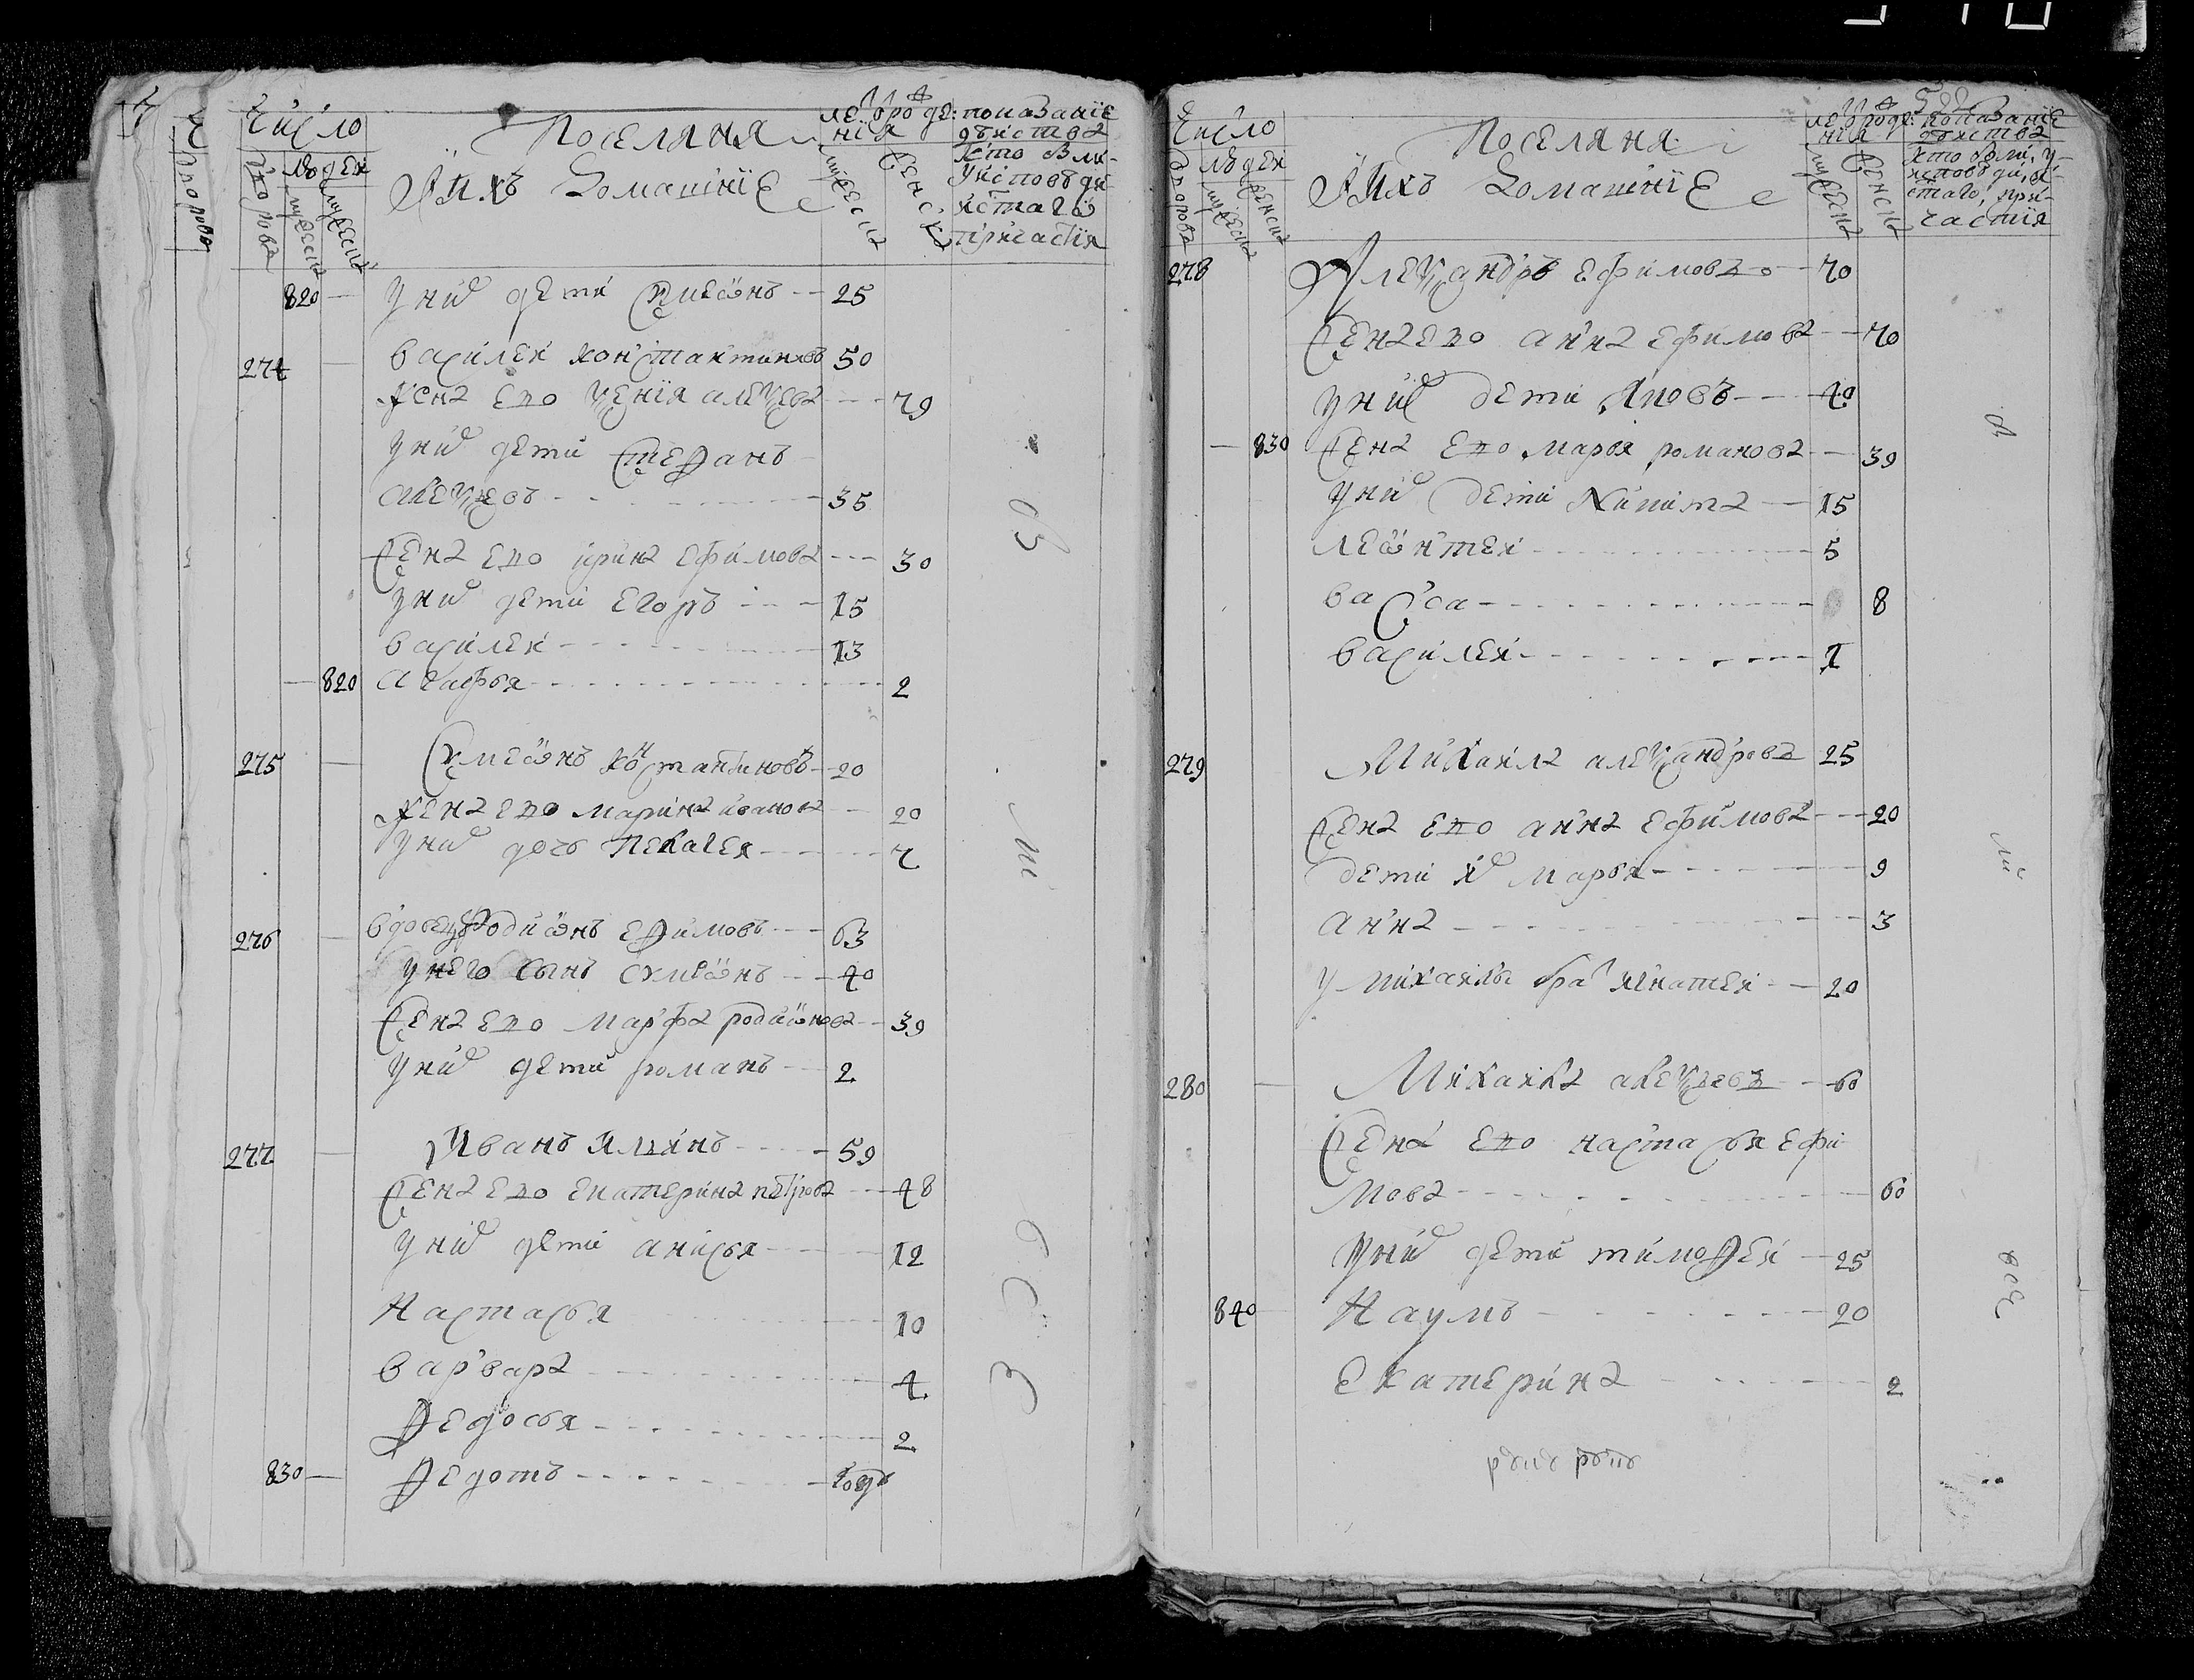 Число
людей
дворовъ
мужеска
женска
Поселяня
И ихъ домашнїе
лета рожде:
нїя
мужеска
женска
показанїе
действа
кто былъ
у исповѣди
и стаго
причастїя
820 у них дети Симеѡнъ 25
274 василей константиновъ 50
жена ево ѯенїя алеѯеева 49
у них дети стеѳанъ
алеѯеевъ 35
жена ево ирина ефимова 30
у них дети егоръ 15
василей 13
820 агафья 2
275 Симеѡнъ константиновъ 20
жена ево марина иванова 20
у них дочь пелагея 4
276 вдовецъ родиѡнъ еѳимовъ 63
у него сынъ симеѡнъ 40
жена ево марфа родиѡнова 39
у них дети романъ 2
277 Иванъ 59
жена ево екатерина петрова 48
у них дети анисья 12
Настасья 10
варвара 4
Ѳедосья 2
830 Ѳедотъ годъ
бы
ли
все
Число
людей
дворовъ
мужеска
женска
Поселяня
И ихъ домашнїе
лета рожде:
нїя
мужеска
женска
показанїе
действа
кто были у
исповѣди, и
стаго, при-
частїя
278 Алеѯандръ ефимовъ 70
жена ево анна ефимова 70
у них дети яковъ 40
830 жена ево марья романова 39
у них дети никита 15
леѡнтей 5
васса 8
василей 1
279 Михаила алеѯандровъ 25
жена ево анна ефимова 20
дети их марья 9
анна 3
у михаилы брат игнатей 20
280 Михаила алеѯеевъ 60
жена ево настасья ефи
мова 60
у них дети тимоѳей 25
840 Наумъ 20
Екатерина 2
ли
все